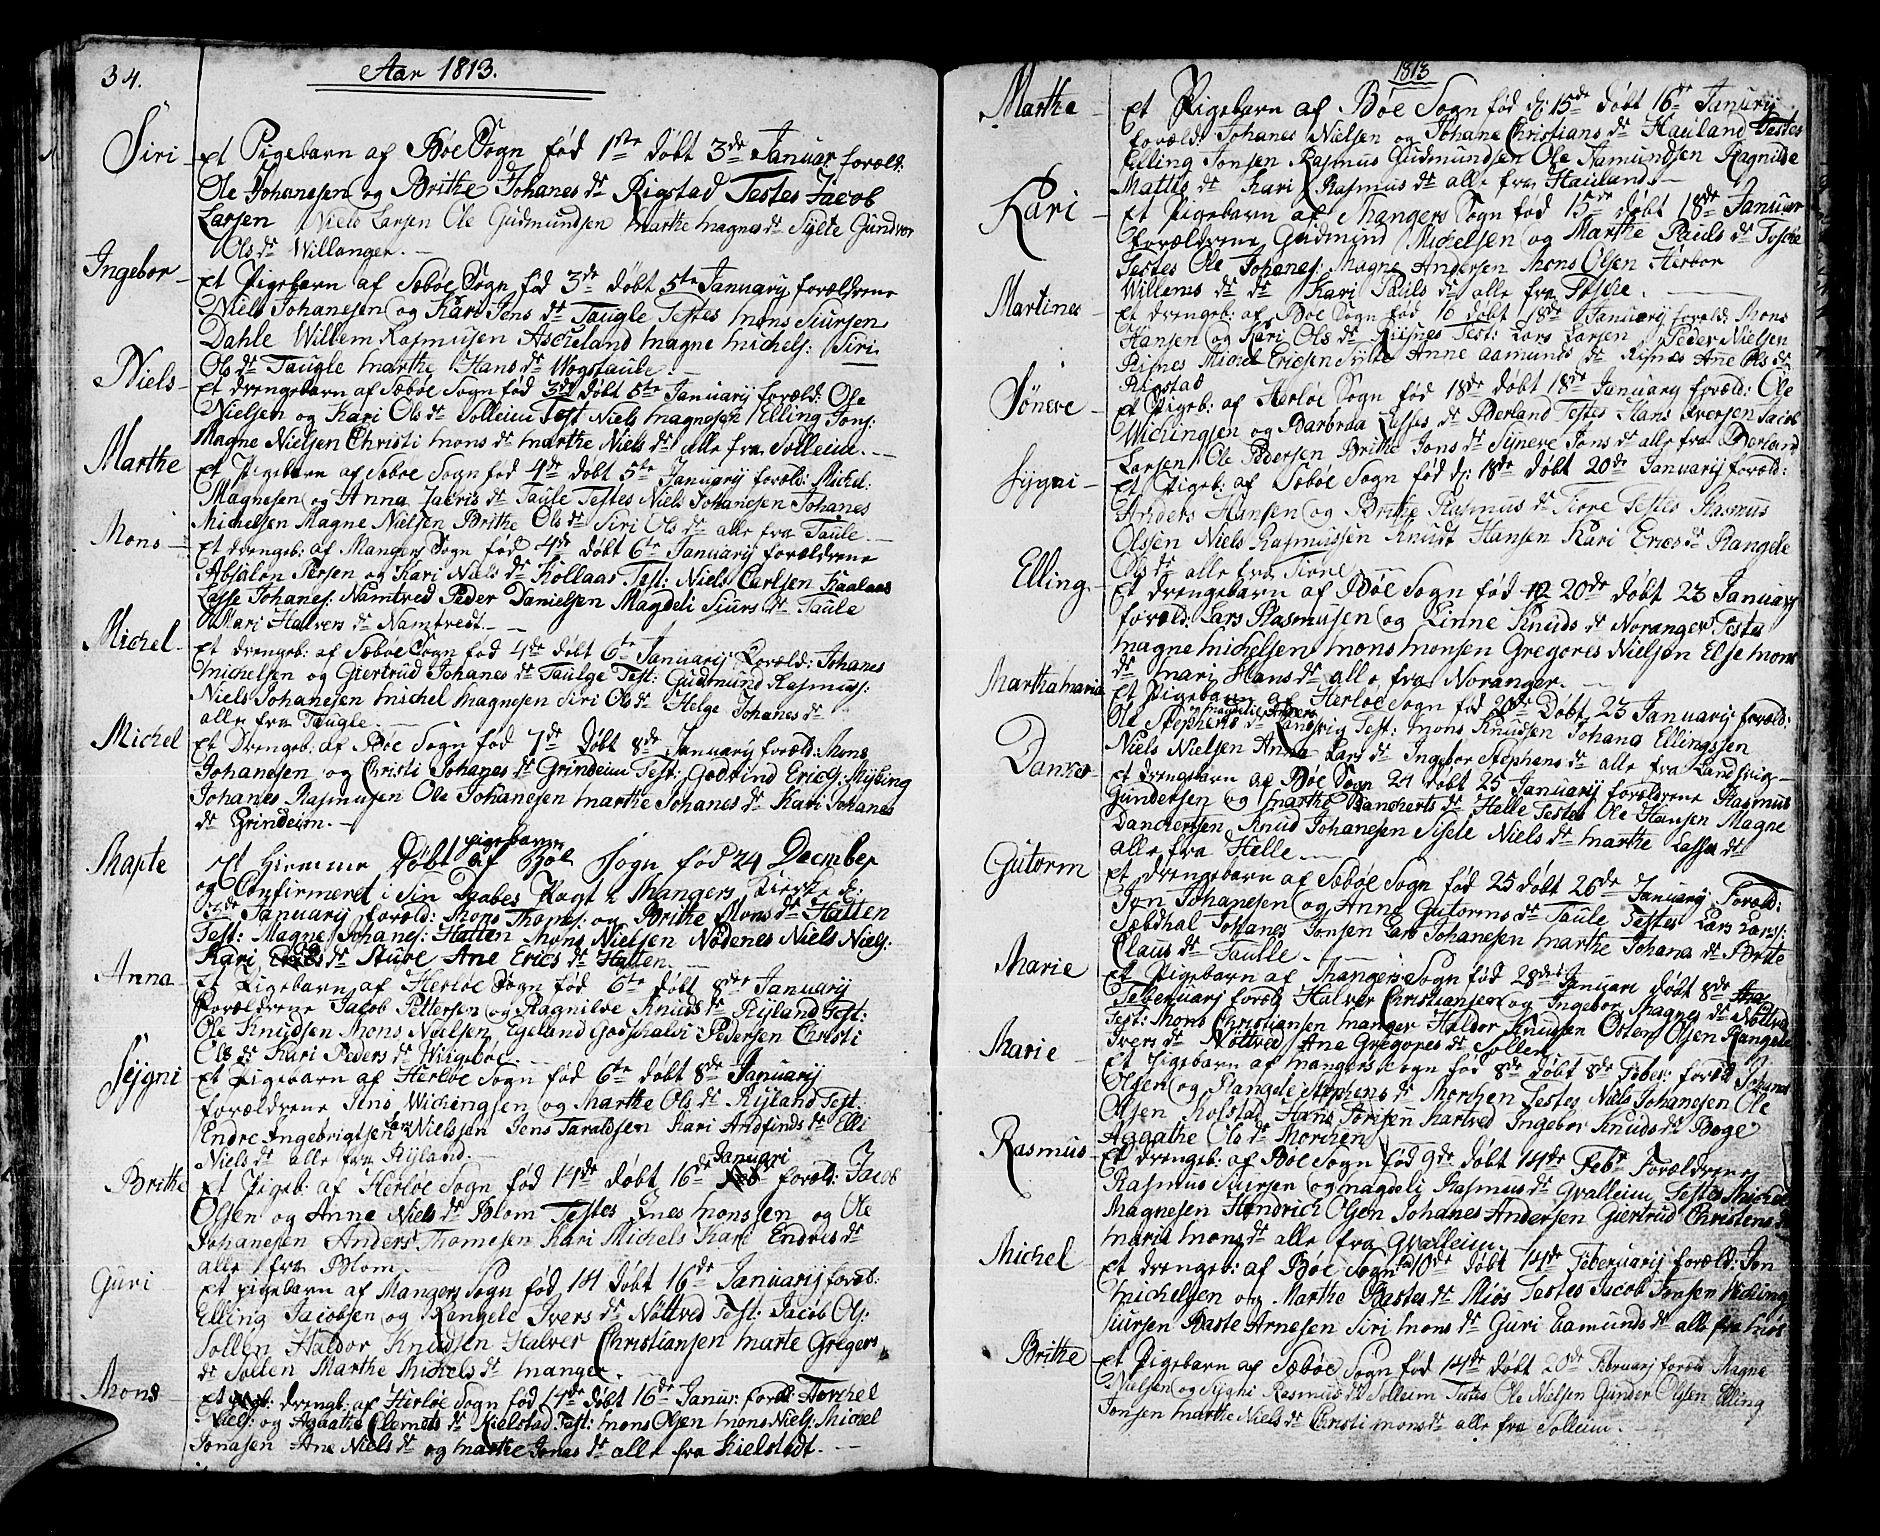 34.
Aar 1813.
Siri - et Pigebarn af Bøe Sogn fød 1ste døbt 3de Januar foræld:
Ole Johanesen og Brithe Johanes dr Rigstad Testes Jacob
Larsen Niels Larsen Ole Gudmundsen Marthe Magnes dr Sylte Gundvor
Ols dr Willanger. -
Ingebor - et Pigebarn af Sæbøe Sogn fød 3de døbt 5te Januarij forældrene
Niels Johanesen og Kari Jens dr Taugle Testes Mons Siursen
Dahle Willem Rasmusen Ascheland Magne Michels: Siri
Ols dr Taugle Marthe Hans dr Wogstaule. -
Niels - et drengebarn af Sæbøe Sogn fød 3de døbt 5te Januarij foræld: Ole
Nielsen og Kari Ols dr Solleim Test Niels Magnesen Elling Jons:
Magne Nielsen Christi Mons dr Marthe Niels dr alle fra Solleim. -
Marthe et Pigebarn af Sæbøe Sogn fød 4de døbt 5te Januarij foræld: Michel
Magnesen og Anna dr Taule Testes Niels Johanesen Johanes
Michelsen Magne Nielsen Brithe Ols dr Siri Ols dr alle fra Taule. -
Mons - et drengeb: af Mangers Sogn fød 4de døbt 6te Januarij forældrene
Absalon Persen og Kari Niels dr Kollaas Test: Niels Carlsen Kaalaas
Lasse Johanes: Namtved Peder Danielsen Magdeli Siurs dr Taule
Mari Halvers dr Namtvedt. -
Michel - et drengeb: af Sæbøe Sogn fød 4de døbt 6te Januarij Foræld: Johanes
Michelsen og Giertrud Johanes dr Taulge Test: Gudmund Rasmus:
Niels Johanesen Michel Magnesen Siri Ols dr Helge Johanes dr
alle fra Taugle. -
Michel et Drengeb: af Bøe Sogn fød 7de Døbt 8de Januarij foræld: Mons
Johanesen og Christi Johanes dr Grindeim Test: Godskind Erics: Myking
Johanes Rasmusen Ole Johanesen Marthe Johanes dr Kari Johanes
dr Grindeim. -
pigebarn
Marte Et Hiemme Døbt af Bøe Sogn fød 24 December
og Confirmeret i Sin Daabes Pagt i Mangers Kirke d:
3de Januarij foræld: Mons Thomes: og Brithe Mons dr Hatten
Test: Magne Johanes: Hatten Mons Nielsen Nødenes Niels Niels:
Kari Erics dr Sture Ane Erics dr Hatten. -
Anna - et Pigebarn af Herløe Sogn fød 6te døbt 8de Januarij
Forældrene Jacob Pettersen og Ragnilde Knuds dr Rijland Test:
Ole Knudsen Mons Nielsen Egeland Godschalvi Pedersen Christi
Ols dr Kari Peders dr . -
Sijgni et Pigebarn af Herløe Sogn fød 6te døbt 8de Januarij
forældrene Jens Wichingsen og Marthe Ols dr Rijland Test
Endre Ingebrigtsen Nielssen Jens Taraldsen Kari Andfinds dr Elli
Niels dr alle fra Rijland. -
Januari
Brithe et Pigeb: af Herløe Sogn fød 14de døbt 16de foræld: Jacob
Olsen og Anne Niels dr Blom Testes Ines Monssen og Ole
Johanesen Anders Thomesen Kari Michels Kari Endres dr
alle fra Blom. -
Guri et Pigebarn af Mangers Sogn fød 14 døbt 16de Januarij foræld:
Elling Jacobsen og Rangele Ivers dr Nøttved Test: Jacob Ols:
Sollen Haldor Knudsen Halver Christiansen Marte Gregors
dr Sollen Marthe Michels dr Manger. -
Mons - et drengeb: af Herløe Sogn fød 14de døbt 16de Januar: foræld: Torchel
Niels: og Agaathe Clemets dr Kielstad Test: Mons Olsen Mons Niels: Michel
Jonasen Ane Niels dr og Marthe Jonas dr alle fra Kielstadt. -
1813
Marthe et Pigebarn af Bøe Sogn fød d: 15de døbt 16de Januarij
foræld: Johanes Nielsen og Johane Christians dr Hauland Testes
Elling Jonsen Rasmus Gudmundsen Ole Aamundsen Ragnilde
Mattis dr Kari Rasmus dr alle fra Hauland. -
Kari - et Pigebarn af Mangers Sogn fød 15de døbt 18de Januar
forældrene Gudmund Michelsen og Marthe Pauls dr Tosche
Testes Ole Johanes: Magne Andersen Mons Olsen Herbor
Willems dr dr Kari Pauls dr alle fra Tosche. -
Martines - et drengeb: af Bøe Sogn fød 16 døbt 18de Januarij foræld: Mons
Hansen og Kari Ols dr Risnes Test: Lars Larsen Peder Nielsen
Risnes Michel Ericsen Sylte Anne Aamunds dr Risnæs Ane Ols dr
Rigstad
Søneve - et Pigeb: af Herløe Sogn fød 18de døbt 18de Januarij foræld: Ole
Wichingsen og Barbraa Lasses dr Berland Testes Hans Iversen Jacob
Larsen Ole Pedersen Brithe Jons dr Synneve Jons dr alle fra Berland
Sygni - et Pigeb: af Sæbøe Sogn fød d: 18de døbt 20de Januarij foræld:
Anders Hansen og Brithe Rasmus dr Fiore Testes Rasmus
Olssen Niels Rasmussen Knudt Hansen Kari Erics dr Rangele
Ols dr alle fra . -
Elling - et drengebarn af Bøe Sogn fød 20de døbt 23 Januarij
foræld: Lars Rasmusen og Linne Knuds dr Noranger Testes
Magne Michelsen Mons Monsen Gregores Nielsen Else Mons
dr Mari Hans dr alle fra Noranger. -
Marthamaria et Pigebarn af Herløe Sogn fød 20de Døbt 23 Januarij foræld:
Ole Stephens dr Landsvig Test: Mons Knudsen Johana Ellingssen
Niels Nielsen Anna Lars dr Ingebor Stephens dr alle fra Landsvig -
Danke - et drengebarn af Bøe Sogn 24 døbt 25 Januarij forældrene Rasmus
Gundersen og Marthe Danckerts dr Helle Testes Ole Hansen Magne
Danckertsen Knud Johanesen Sisele Niels dr Marthe Lasses dr
alle fra Helle. -
Gutorm et drengebarn af Sæbøe Sogn fød 25 døbt 26de Januarij Foræld:
Jon Johanesen og Anne Gutorms dr Taule Testes Lars Lars:
Sæbdhal Johanes Jonsen Lars Johanesen Marthe Johana dr Brite
Claus dr Taulle. -
Marie et Pigebarn af Mangers Sogn fød 28de Januari døbt 8de
Februarij foræld Halver Christiansen og Ingebor Magnes dr Nøttve
Test: Mons Christiansen Manger Haldor Knudsen Osten Olsen Rangele
Ivers dr Nøttved Ane Gregores dr Sollen
Marie - et Pigebarn af Mangers Sogn fød 8de døbt 8de Feber: foræld Johanes
Olsen og Rangele Stephens dr Morchen Testes Niels Johanesen Ole
Olsen Rolstad Hans Jorisen Hartved Ingebor Knuds dr Boge
Aggathe Ols dr Morchen
Rasmus - et drengeb: af Bøe Sogn fød 9de døbt 14de Febr Forældrene
Rasmus Siursen og Magdeli Rasmus dr Qvalleim Testes Michel
Magnesen Hendrich Olsen Johanes Andersen Giertrud Christens dr
Marit Mons dr alle fra Qvalleim.
Michel - et drengeb: af Bøe Sogn 10de døbt 14de Februarij foræld: Jon
Michelsen og Marthe Bastes dr Mios Testes Jacob Jonsen Viching
Siursen Baste Arnesen Siri Mons dr Guri Eamunds dr alle fra Mios
Brithe - et Pigebarn af Sæbøe Sogn fød 14de døbt 20de Februarij foræld Magne
Nielsen og Sijgni Rasmus dr Solleim Testes Ole Nielsen Gunder Olsen Elling
Jonsen Marthe Niels dr Christi Mons dr alle fra Solleim. -